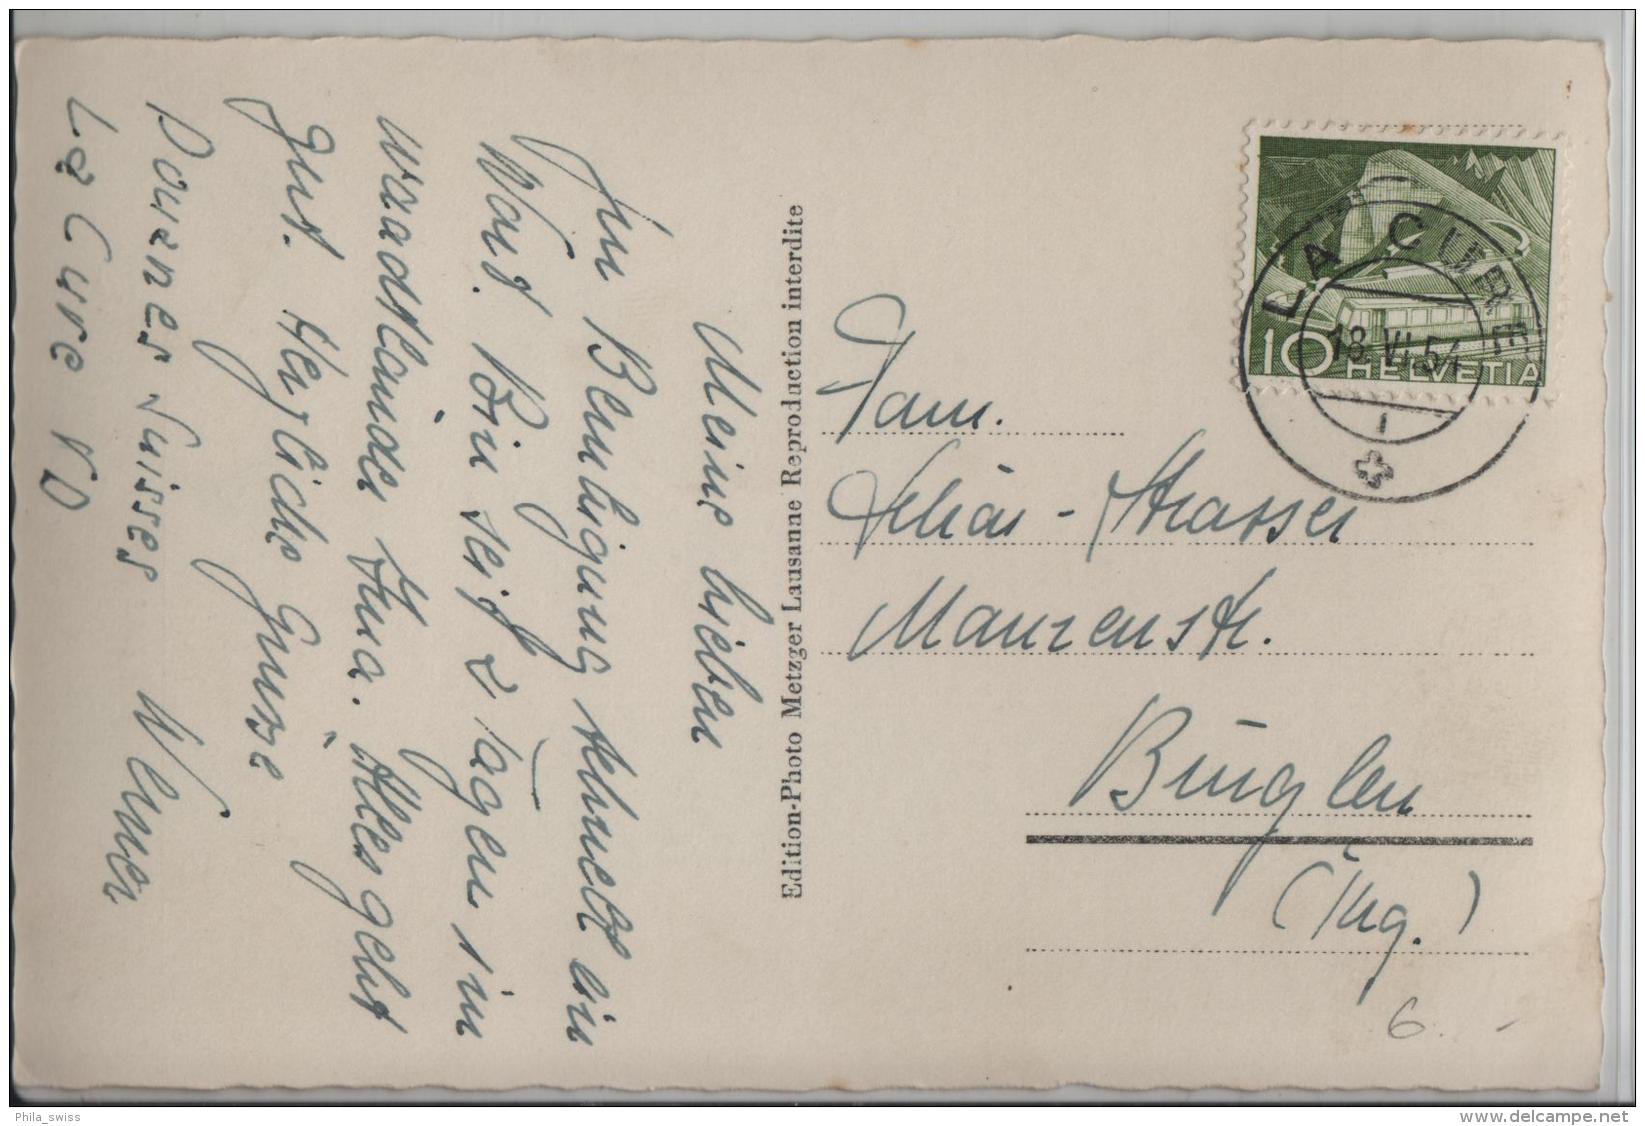 Meine Lieben
Zur Beruhigung schnell ein
Wort. Bin seit 2 Tagen im
waadtländer Jura. Alles geht
gut. Herzliche Grüsse
Werner
Douanes Suisses
La Cure VD
Edition-Photo Metzger Lausanne Reproduction interdite
LA CURE
18.VI.54
10 HELVETIA
Fam.
Schär-Strasser
Bürglen
(Thg.)
6. -
Phila_swiss
delcampe.net